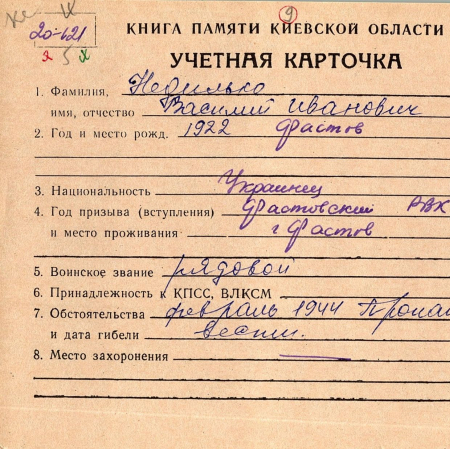 9
20-421
5
КНИГА ПАМЯТИ КИЕВСКОЙ ОБЛАСТИ
УЧЕТНАЯ КАРТОЧКА
1. Фамилия, Недилько
имя, отчество Василий Иванович
2. Год и место рожд. 1922 Фастов
3. Национальность Украинец
4. Год призыва (вступления) Фастовский РВК
и место проживания г Фастов
5. Воинское звание рядовой
6. Принадлежность к КПСС, ВЛКСМ
7. Обстоятельства февраль 1944 Пропал
и дата гибели вести.
8. Место захоронения